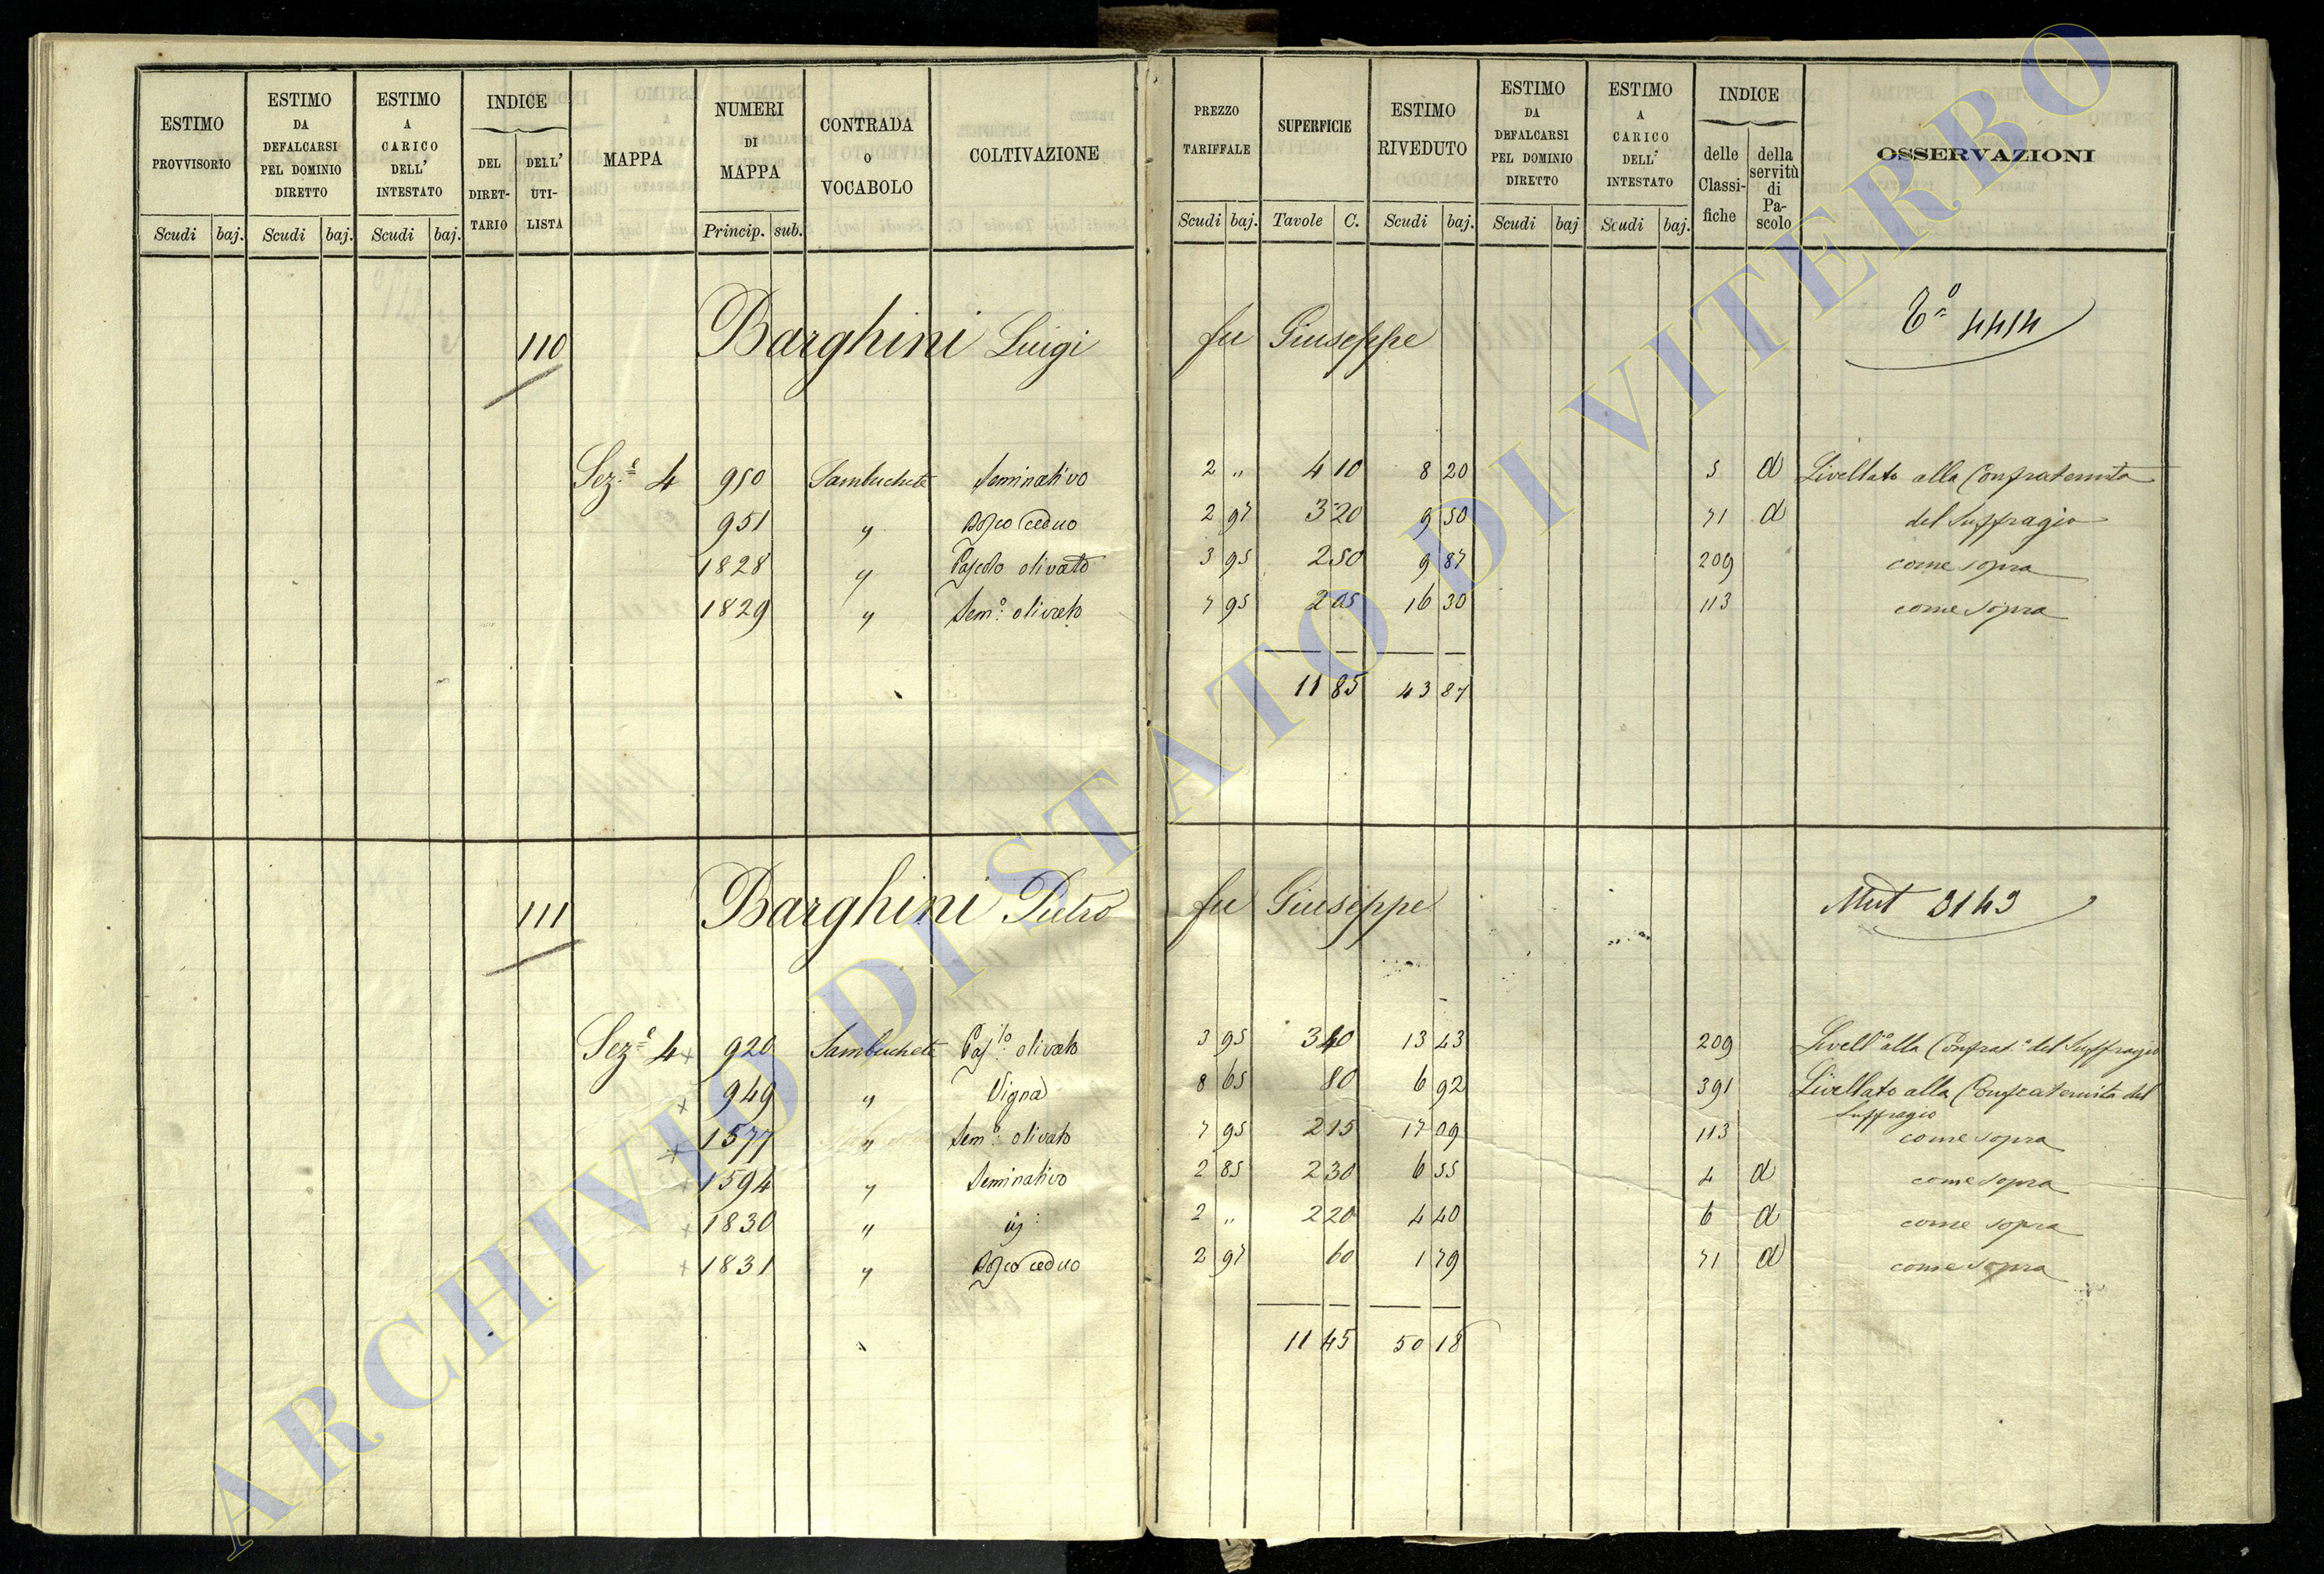 ESTIMO PROVVISORIO | ESTIMO DA DEFALCARSI PEL DOMINIO DIRETTO | ESTIMO A CARICO DELL' INTESTATO | INDICE DEL DIRETTARIO | DELL' UTILISTA | MAPPA | NUMERI DI MAPPA | CONTRADA O VOCABOLO | COLTIVAZIONE | PREZZO TARIFFALE | SUPERFICIE | ESTIMO RIVEDUTO | ESTIMO DA DEFALCARSI PEL DOMINIO DIRETTO | ESTIMO A CARICO DELL' INTESTATO | INDICE delle Classifiche | della servitù di Pascolo | OSSERVAZIONI
Scudi baj. Scudi baj. Scudi baj. Princip. sub. Scudi baj. Tavole C. Scudi baj. Scudi baj Scudi baj.
110 Barghini Luigi fu Giuseppe 4414
Sez.e 4 950 Sambuchete Seminativo 2 „ 4 10 8 20 5 d Livellato alla Confraternita
951 „ Bosco ceduo 2 97 3 20 9 50 71 d del Suffragio
1828 „ Pascolo olivato 3 95 2 50 9 87 209 come sopra
1829 „ Sem.o olivato 7 95 2 05 16 30 113 come sopra
11 85 43 87
111 Barghini Pietro fu Giuseppe Mut 3143
Sez.e 4 920 Sambuchete Pas.lo olivato 3 95 3 40 13 43 209 Livell.o alla Confrat.a del Suffragio
949 „ Vigna 8 65 80 6 92 391 Livellato alla Confraternita del Suffragio
1577 „ Sem.o olivato 7 95 2 15 17 09 113 come sopra
1594 „ Seminativo 2 85 2 30 6 55 4 d come sopra
1830 „ 2 „ 2 20 4 40 6 d come sopra
1831 „ Bosco ceduo 2 97 60 1 79 71 d come sopra
11 45 50 18
ARCHIVIO DI STATO DI VITERBO